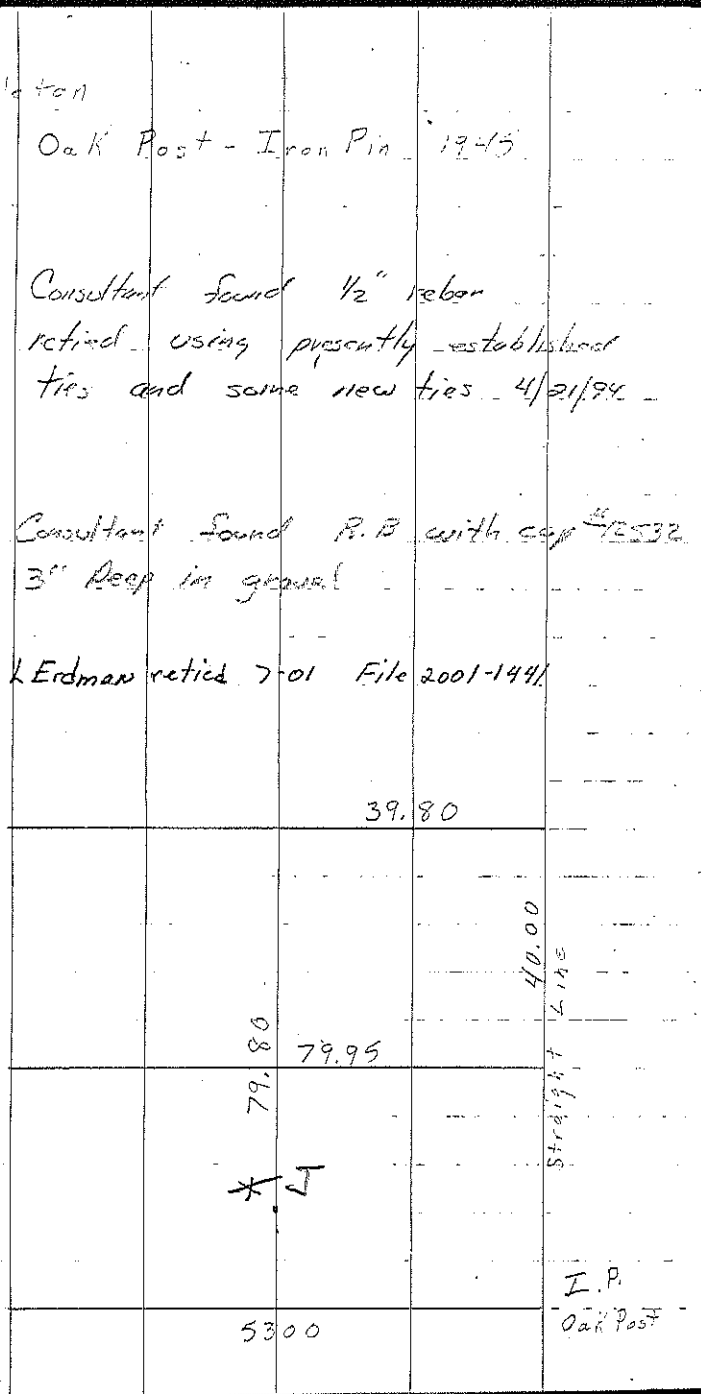 Oak Post - Iron Pin 1945
Consultant found 1/2" rebar
retied using presently established
ties and some new ties 4/21/94
Consultant found R.B with cap #12532
3" Deep in gravel
L Erdman retied 7-01 File 2001-1441
39.80
40.00
Straight Line
79.80
79.95
* J
I.P.
Oak Post
5300